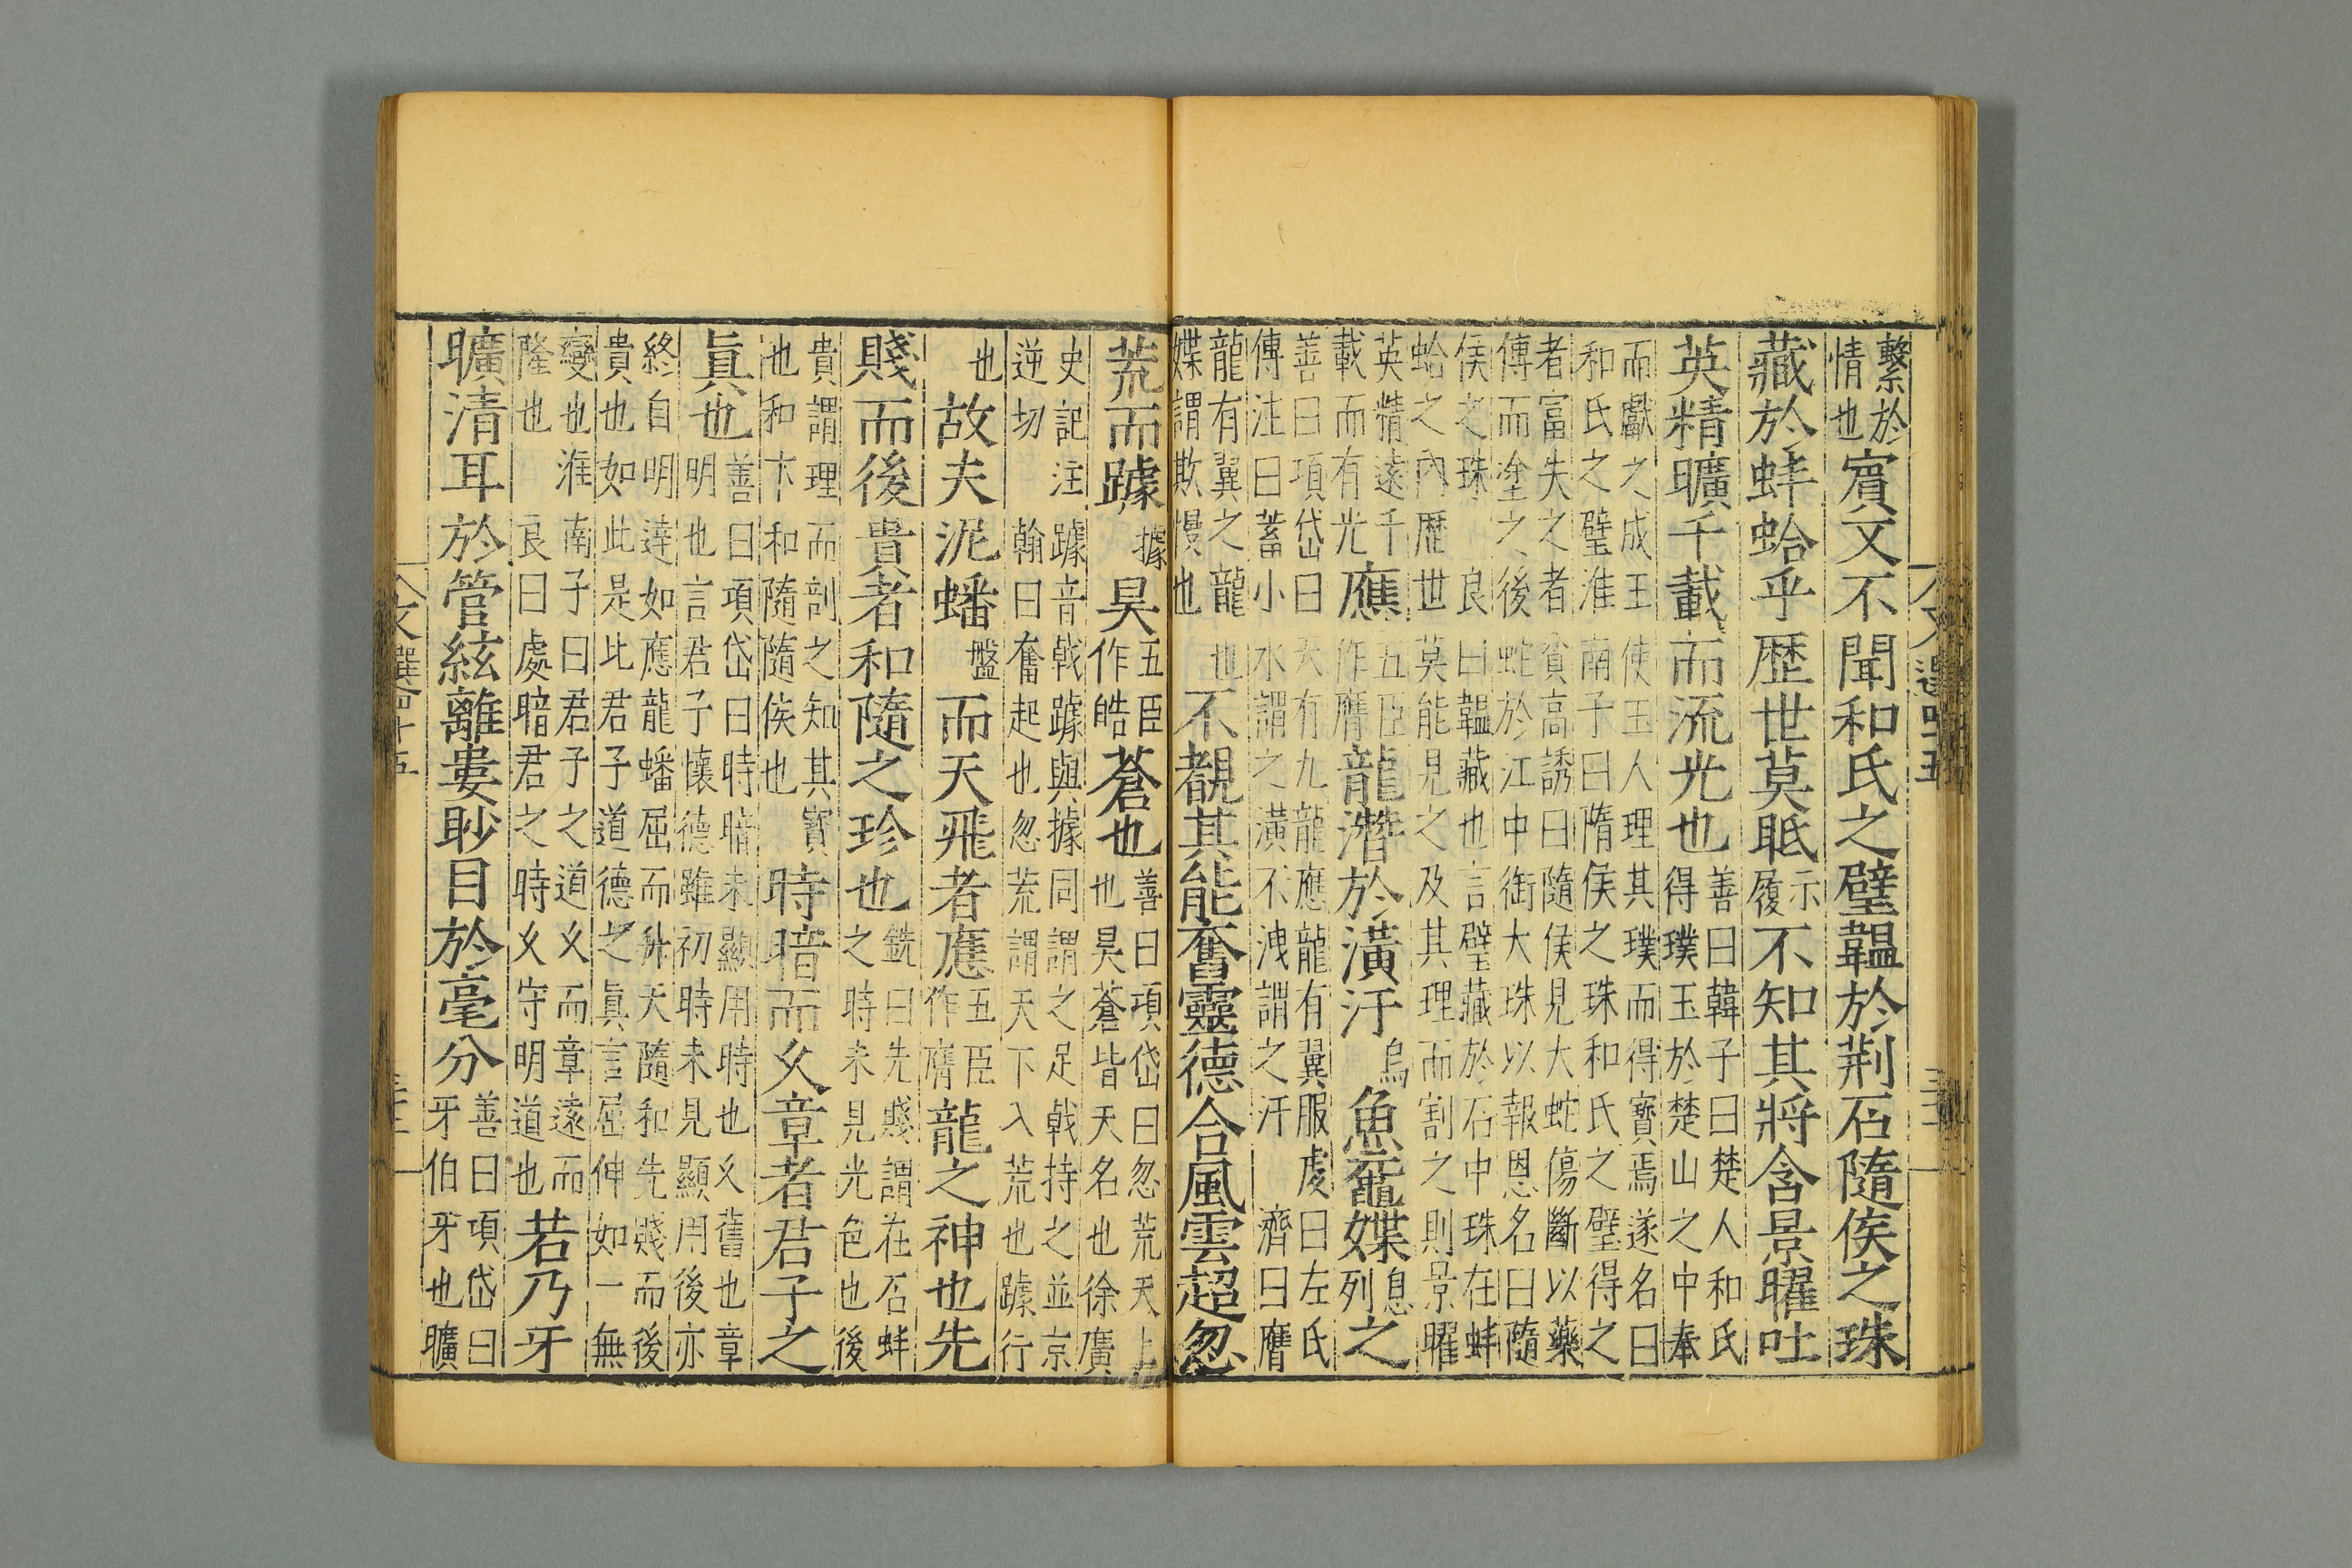 繫於情也賓又不聞和氏之璧韞於荆石隨侯之珠
藏於蚌蛤乎歷世莫眂示履不知其將含景曜吐
英精曠千載而流光也善曰韓子曰楚人和氏得璞玉於楚山之中奉
而獻之成王使玉人理其璞而得寳焉遂名曰和氏之璧淮南子曰隋侯之珠和氏之璧得之
者富失之者貧高誘曰隨侯見大蛇傷斷以藥傅而塗之後蛇於江中銜大珠以報恩名曰隨
侯之珠良曰韞藏也言璧藏於石中珠在蚌蛤之內歷世莫能見之及其理而割之則景曜
英精遠千載而有光應五臣作膺龍潛於潢汙烏魚黿媟息列之
善曰項岱曰天有九龍應龍有翼服虔曰左氏傳注曰蓄小水謂之潢不洩謂之汙濟曰膺
龍有翼之龍也媟謂欺慢也不覩其能奮靈德合風雲超忽
荒而躆據昊五臣作皓蒼也善曰項岱曰忽荒天上也昊蒼皆天名也徐廣
史記注躆音戟躆與據同謂之足戟持之並京逆切翰曰奮起也忽荒謂天下入荒也躆行
也故夫泥蟠盤而天飛者應五臣作膺龍之神也先
賤而後貴者和隨之珍也銑曰先賤謂在石蚌之時未見光色也後
貴謂理而剖之知其寳也和卞和隨隨侯也時暗而乆章者君子之
眞也善曰項岱曰時暗未顯用時也乆舊也章明也言君子懷德雖初時未見顯用後亦
終自明達如應龍蟠屈而升天隨和先賤而後貴也如此是比君子道德之眞言屈伸如一無
變也淮南子曰君子之道乆而章遠而隆也良曰處暗君之時乆守明道也若乃牙
曠清耳於管絃離婁眇目於毫分善曰項岱曰牙伯牙也曠
文選四十五
文選四十五